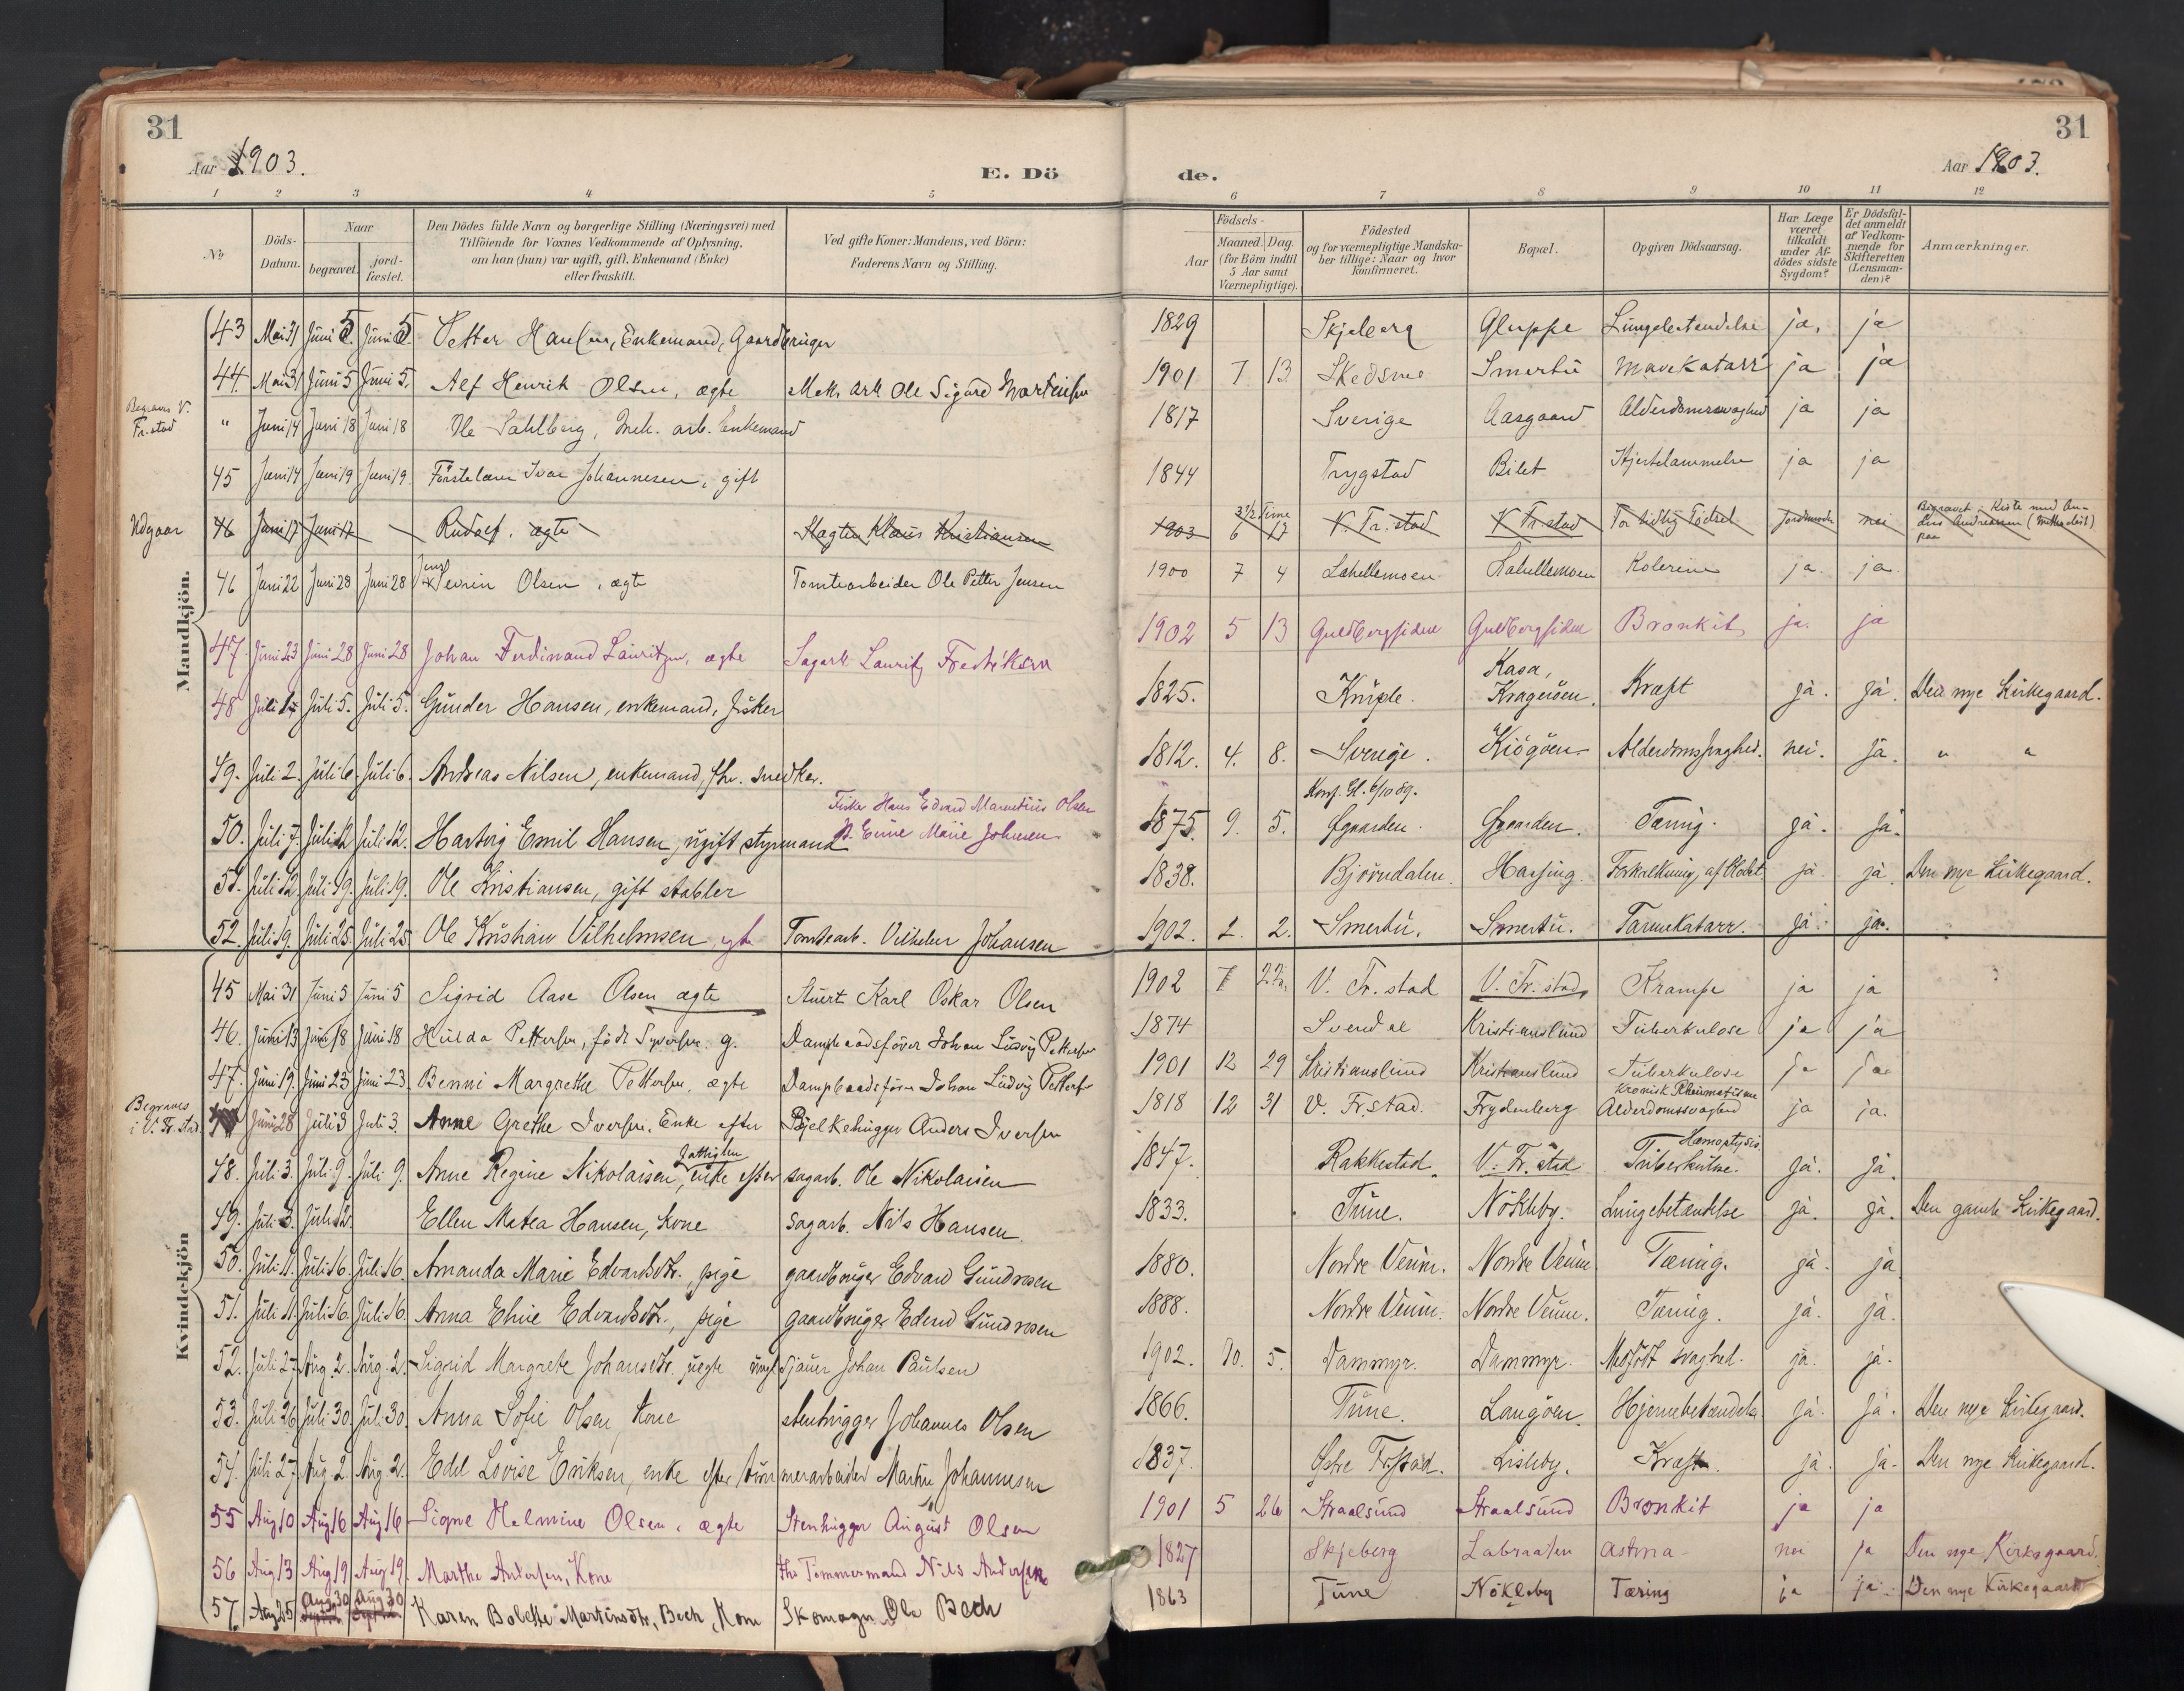 31
Aar 1903.
E. Dö
de.
Aar 1903.
31
1 2 3 4 5 6 7 8 9 10 11 12
No
Döds-Datum.
Naar
begravet.
jord-fæstet.
Den Dödes fulde Navn og borgerlige Stilling (Næringsvei) med
Tilföiende for Voxnes Vedkommende af Oplysning,
om han (hun) var ugift, gift, Enkemand (Enke)
eller fraskilt.
Ved gifte Koner: Mandens, ved Börn:
Faderens Navn og Stilling.
Födsels-
Aar
Maaned. Dag.
(for Börn indtil
5 Aar samt
Værnepligtige).
Födested
og for værnepligtige Mandska-
ber tillige: Naar og hvor
konfirmeret.
Bopæl.
Opgiven Dödsaarsag.
Har Læge
været
tilkaldt
under Af-
dödes sidste
Sygdom?
Er Dödsfal-
det anmeldt
af Vedkom-
mende for
Skifteretten
(Lensman-
den)?
Anmærkninger.
Mandkjön.
43 Mai 31 Juni 5. Juni 5. Petter Hansen, Enkemand, Gaardbruger 1829 Skjeberg Gluppe Lungebetændelse ja, ja
44. Mai 31 Juni 5 Juni 5. Alf Henrik Olsen, ægte Mek. arb. Ole Sigurd Martinsen 1901 7 13. Skedsmo Smertu Mavekatarr ja ja
Begraves V. Fr.stad " Juni 14 Juni 18 Juni 18 Ole Sahlberg, Mek. arb. Enkemand 1817 Sverige Aasgaard Alderdomssvaghed ja ja
45 Juni 14 Juni 19 Juni 19. Förstelærer Ivar Johannesen, gift 1844 Trygstad Bilet Hjertelammelse ja ja
Udgaar 46 Juni 17 Juni 17 Rudolf. ægte Slagter Klaus Kristiansen 1903 6 17 3½ Time V. Fr.stad V. Fr.stad For tidlig Födsel Jordmoder nei Begravet i Kiste med
46 Juni 22 Juni 28 Juni 28 Jens Severin Olsen, ægte Tomtearbeider Ole Petter Jensen 1900 7 4 Lahellemoen Lahellemoen Kolerine ja. ja.
47. Juni 23 Juni 28 Juni 28 Johan Ferdinand Lauritzen, ægte Sagarb Lauritz Fredriksen 1902 5 13 Guldbergsiden Guldbergsiden Bronkit ja. ja
48 Juli 1. Juli 5. Juli 5. Gunder Hansen, enkemand, fisker 1825. Kniple. Kasa, Krageröen. Kræft ja. ja. Den nye Kirkegaard.
49. Juli 2. Juli 6. Juli 6. Andreas Nilsen, enkemand, fhv. snedker. 1812. 4. 8. Sverige. Kjögöen Alderdomssvaghed. nei. ja. " "
Fisker Hans Edvard Marentius Olsen
Konf. Gl. 6/10 89.
50. Juli 7. Juli 12. Juli 12. Hartvig Emil Hansen, ugift styrmand Eline Marie Johnsen 1875. 9. 5. Øgaarden. Øgaarden. Tæring. ja. ja.
51. Juli 12. Juli 19. Juli 19. Ole Kristiansen, gift stabler 1838. Björndalen. Hassing. Forkalkning af ja. ja. Den nye Kirkegaard.
52. Juli 19. Juli 25. Juli 25 Ole Kristian Vilhelmsen, ægte Tomtearb. Vilhelm Johansen 1902. 2. 2. Smertu. Smertu. Tarmekatarr. ja. ja.
Kvindekjön
45 Mai 31 Juni 5 Juni 5 Sigrid Aase Olsen ægte Stuert Karl Oskar Olsen 1902 7 22. V. Fr. stad V. Fr. stad, Krampe ja ja
46. Juni 13 Juni 18 Juni 18 Hulda Pettersen, födt Syversen. g. Dampbaadsförer Johan Ludvig Pettersen 1874 Svendal Kristianslund Tuberkulose ja ja
47. Juni 19. Juni 23 Juni 23. Benni Margrethe Pettersen, ægte Dampbaadsförer Johan Ludvig Petters 1901 12 29 Kristianslund Kristianslund Tuberkulose ja ja
Begraves i V. Fr. stad. Juni 28 Juli 3 Juli 3. Anne Grethe Iversen. Enke efter Bjelkehugger Anders Iversen 1818 12 31 V. Fr.stad. Frydenberg Kronisk Rheumatisme Alderdomssvaghed ja ja.
48. Juli 3. Juli 9. Juli 9. Anne Regine Nikolaisen, enke efter sagarb. Ole Nikolaisen 1847. Rakkestad. V. Fr. stad Hæmoptysis. Tuberkulose. ja. ja.
49. Juli 3. Juli 12. Ellen Matea Hansen, kone sagarb. Nils Hansen. 1833. Tune. Nökleby. Lungebetændelse ja. ja. Den gamle Kirkegaard.
50. Juli 11. Juli 16. Juli 16. Amanda Marie Edvardsdtr., pige gaardbruger Edvard Gundresen 1880. Nordre Venim. Nordre Venim Tæring. ja. ja
51. Juli 11. Juli 16. Juli 16. Anna Eline Edvardsdtr., pige gaardbruger Edvard Gundresen 1888. Nordre Venim. Nordre Venim. Tæring. ja. ja.
52. Juli 27. Aug. 2. Aug. 2. Sigrid Margrete Johansdtr. uegte ungk sjauer Johan Paulsen 1902. 10. 5. Dammyr. Dammyr. Medfödt svaghed. ja. ja.
53. Juli 26. Juli 30. Juli 30. Anna Sofie Olsen, kone stenhugger Johannes Olsen 1866. Tune. Langöen. Hjernebetændelse ja. ja. Den nye Kirkegaard.
54. Juli 27. Aug. 2. Aug. 2. Edel Lovise Eriksen, enke efter tömmerarbeider Martin Johannesen 1837. Østre Fr.stad. Lisleby. Kræft. ja. ja. Den nye Kirkegaard.
55 Aug 10 Aug 16 Aug 16 Signe Helmine Olsen, ægte Stenhugger August Olsen 1901 5 26 Straalsund Straalsund Bronkit ja ja
56 Aug 13 Aug 19 Aug 19. Marthe Andersen, Kone fhv Tömmermand Nils Andersen 1827 Skjeberg Labraaten Astma nei ja Den nye Kirkegaard.
57. Aug 25 Aug 30 Aug 30 Karen Bolette Martinsdtr. Bech, Kone Skomager Ole Bech 1863 Tune Nökleby Tæring ja ja Den nye Kirkegaard